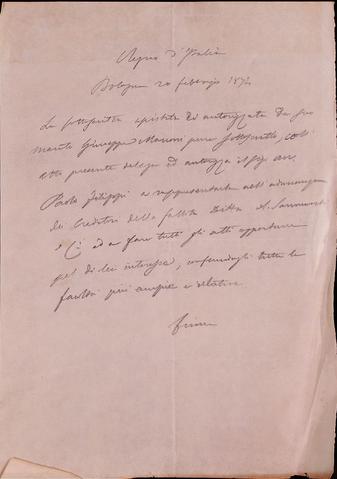 Regno d'Italia
Bologna 20 febbraio 187
La sottoscritta assistita ed autorizzata da suo
marito Giuseppe pure sottoscritto, coll'
atto presente delega ed autorizza il Sig. Avv.
Paolo Filippi a rappresentarla nell'adunanza
dei Creditori della fallita Ditta A.
e C.i ed a fare tutti gli atti opportuni
pel di lei interesse, conferendogli tutte le
facoltà più ampie e relative
Firma